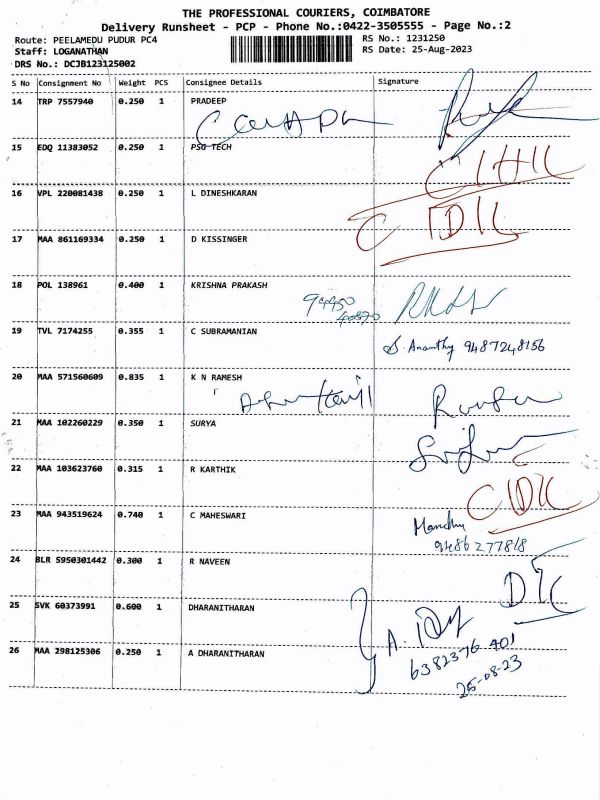 THE PROFESSIONAL COURIERS, COIMBATORE
Delivery Runsheet - PCP - Phone No.:0422-3505555 - Page No.:2
Route: PEELAMEDU PUDUR PC4
RS No.: 1231250
Staff: LOGANATHAN
RS Date: 25-Aug-2023
DRS No.: DCJB123125002
S No Consignment No Weight PCS Consignee Details Signature
14 TRP 7557940 0.250 1 PRADEEP
15 EDQ 11383052 0.250 1 PSG TECH
16 VPL 220081438 0.250 1 L DINESHKARAN
17 MAA 861169334 0.250 1 D KISSINGER
18 POL 138961 0.400 1 KRISHNA PRAKASH
19 TVL 7174255 0.355 1 C SUBRAMANIAN
S. Ananthy 9487248156
20 MAA 571560609 0.835 1 K N RAMESH
21 MAA 102260229 0.350 1 SURYA
22 MAA 103623760 0.315 1 R KARTHIK
23 MAA 943519624 0.740 1 C MAHESWARI
24 BLR 5950301442 0.300 1 R NAVEEN
25 SVK 60373991 0.600 1 DHARANITHARAN
26 MAA 298125306 0.250 1 A DHARANITHARAN
6382376401
25-08-23